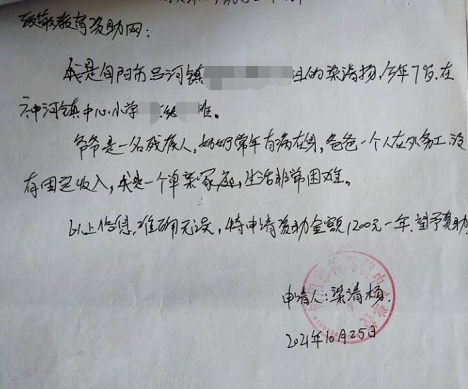 致敏教育资助网：
我是旬阳市吕河镇组的梁清杨，今年7岁，在
神河镇中心小学班。
爷爷是一名残疾人，奶奶常年有病在身，爸爸一个人在外务工，没
有固定收入，我是一个单亲家庭，生活非常困难。
以上信息，准确无误，特申请资助金额1200元一年，望予资助
申请人：梁清杨
2021年10月25日